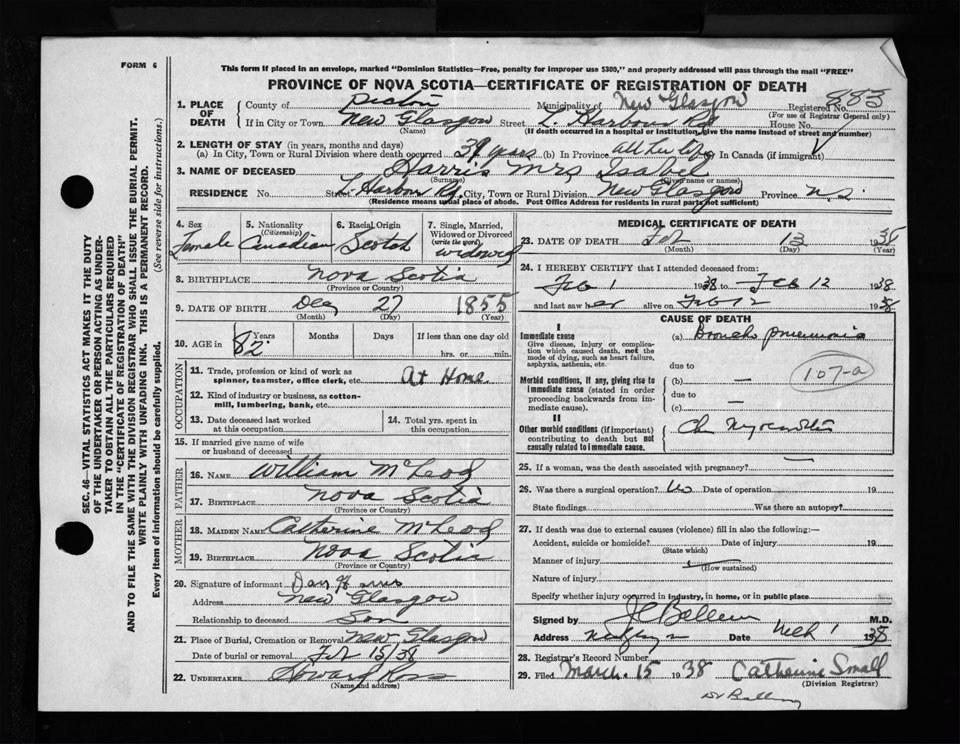 FORM 6
This form if placed in an envelope, marked "Dominion Statistics—Free, penalty for improper use $300," and properly addressed will pass through the mail "FREE"
PROVINCE OF NOVA SCOTIA—CERTIFICATE OF REGISTRATION OF DEATH
1. PLACE OF DEATH
County of Pictou Municipality of New Glasgow Registered No. 883
(For use of Registrar General only)
If in City or Town New Glasgow Street L. Harbour Rd House No.
(Name) (If death occurred in a hospital or institution, give the name instead of street and number)
2. LENGTH OF STAY (in years, months and days)
(a) In City, Town or Rural Division where death occurred 39 years (b) In Province all her life (c) In Canada (if immigrant)
3. NAME OF DECEASED Harris Mrs Isabel
(Surname) (Given name or names)
RESIDENCE No. Street L. Harbour Rd. City, Town or Rural Division New Glasgow Province N.S.
(Residence means usual place of abode. Post Office Address for residents in rural parts not sufficient)
4. Sex
Female
5. Nationality
(Citizenship)
Canadian
6. Racial Origin
Scotch
7. Single, Married, Widowed or Divorced
(write the word)
widowed
8. BIRTHPLACE Nova Scotia
(Province or Country)
9. DATE OF BIRTH Dec 27 1855
(Month) (Day) (Year)
10. AGE in Years Months Days If less than one day old
82 hrs. or min.
OCCUPATION
11. Trade, profession or kind of work as
spinner, teamster, office clerk, etc. At Home
12. Kind of industry or business, as cotton-
mill, lumbering, bank, etc.
13. Date deceased last worked
at this occupation
14. Total yrs. spent in
this occupation
15. If married give name of wife
or husband of deceased
FATHER
16. NAME William McLeod
17. BIRTHPLACE Nova Scotia
(Province or Country)
MOTHER
18. MAIDEN NAME Catherine McLeod
19. BIRTHPLACE Nova Scotia
(Province or Country)
20. Signature of informant
Address New Glasgow
Relationship to deceased Son
21. Place of Burial, Cremation or Removal New Glasgow
Date of burial or removal Feb 15/38
22. UNDERTAKER Howard Ross
(Name and address)
MEDICAL CERTIFICATE OF DEATH
23. DATE OF DEATH Feb 13 1938
(Month) (Day) (Year)
24. I HEREBY CERTIFY that I attended deceased from:
Feb 1 1938 to Feb 12 1938
and last saw her alive on Feb 12 1938
CAUSE OF DEATH
I
Immediate cause
Give disease, injury or complica-
tion which caused death, not the
mode of dying, such as heart failure,
asphyxia, asthenia, etc.
(a) Broncho pneumonia
due to
107-a
Morbid conditions, if any, giving rise to
immediate cause (stated in order
proceeding backwards from im-
mediate cause).
(b) —
due to
(c) —
II
Other morbid conditions (if important)
contributing to death but not
causally related to immediate cause.
Ch Myocarditis
25. If a woman, was the death associated with pregnancy? —
26. Was there a surgical operation? No Date of operation 19
State findings Was there an autopsy?
27. If death was due to external causes (violence) fill in also the following:—
Accident, suicide or homicide? Date of injury 19
(State which)
Manner of injury
(How sustained)
Nature of injury
Specify whether injury occurred in industry, in home, or in public place
Signed by M.D.
Address Date Mch 1 1938
28. Registrar's Record Number
29. Filed March 15 1938 Catherine Small
(Division Registrar)
SEC. 46—VITAL STATISTICS ACT MAKES IT THE DUTY
OF THE UNDERTAKER OR PERSON ACTING AS UNDER-
TAKER TO OBTAIN ALL THE PARTICULARS REQUIRED
IN THE "CERTIFICATE OF REGISTRATION OF DEATH"
AND TO FILE THE SAME WITH THE DIVISION REGISTRAR WHO SHALL ISSUE THE BURIAL PERMIT.
WRITE PLAINLY WITH UNFADING INK. THIS IS A PERMANENT RECORD.
Every item of information should be carefully supplied. (See reverse side for instructions.)